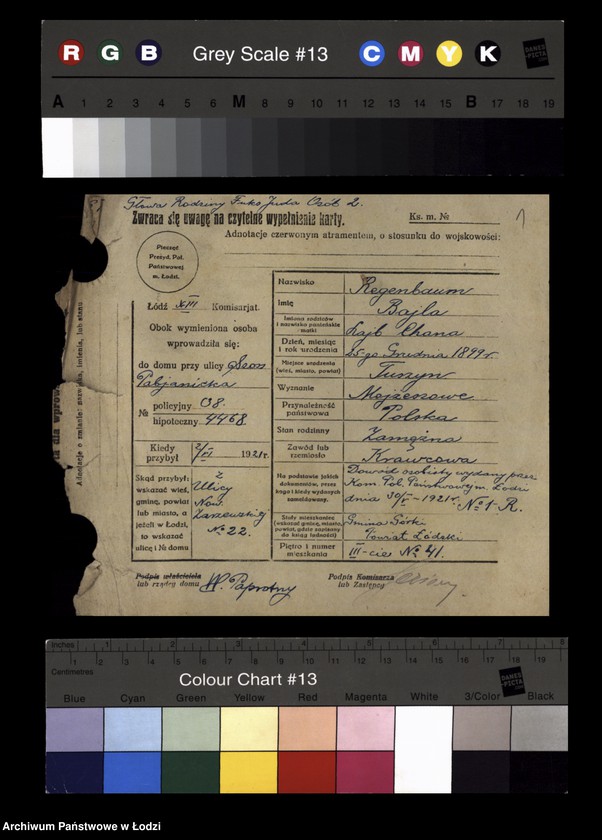 R G B Grey Scale #13 C M Y K DANES PICTA .COM
A 1 2 3 4 5 6 M 8 9 10 11 12 13 14 15 B 17 18 19
Głowa Rodziny Juda Osób 2.
Zwraca się uwagę na czytelne wypełnianie karty.
Ks. m. №
1
Adnotacje czerwonym atramentem, o stosunku do wojskowości:
Pieczęć
Przyd. Pol.
Państwowej
m. Łodzi.
Łódź XIII Komisarjat.
Obok wymieniona osoba
wprowadziła się:
do domu przy ulicy
Pabjanicka
№ policyjny 08.
hipoteczny 4468.
Kiedy
przybył
1921r.
Skąd przybył:
wskazać wieś,
gminę, powiat
lub miasto, a
jeżeli w Łodzi,
to wskazać
ulicę i № domu
z
Ulicy
Now.
Zarzewskiej
№ 22.
Nazwisko Regenbaum
Imię Bajla
Imiona rodziców
i nazwisko panieńskie
matki
Łajb Chana
Dzień, miesiąc
i rok urodzenia
25-go Grudnia 1899 r.
Miejsce urodzenia
(wieś, miasto, powiat)
Tuszyn
Wyznanie Mojżeszowe
Przynależność
państwowa
Polska
Stan rodzinny Zamężna
Zawód lub
rzemiosło
Krawcowa
Na podstawie jakich
dokumentów, przez
kogo i kiedy wydanych
zameldowany.
Dowód osobisty wydany przez
Kom Pol. Państwowym. Łodzi
dnia 30/VI-1921 r. № 1-R.
Stały mieszkaniec
(wskazać gminę, miasto,
powiat, gdzie zapisany
do ksiąg ludności)
Gmina Górki
Powiat Łódzki
Piętro i numer
mieszkania
III-cie № 41.
Podpis właściciela
lub rządcy domu
W. Paprotny
Podpis Komisarza
lub Zastępcy
Adnotacje o zmianie: nazwiska, imienia, lub stanu
Inches 1 2 3 4 5 6 7 8
Centimetres 1 2 3 4 5 6 7 8 9 10 11 12 13 14 15 16 17 18 19
Colour Chart #13
DANES PICTA .COM
Blue Cyan Green Yellow Red Magenta White 3/Color Black
Archiwum Państwowe w Łodzi